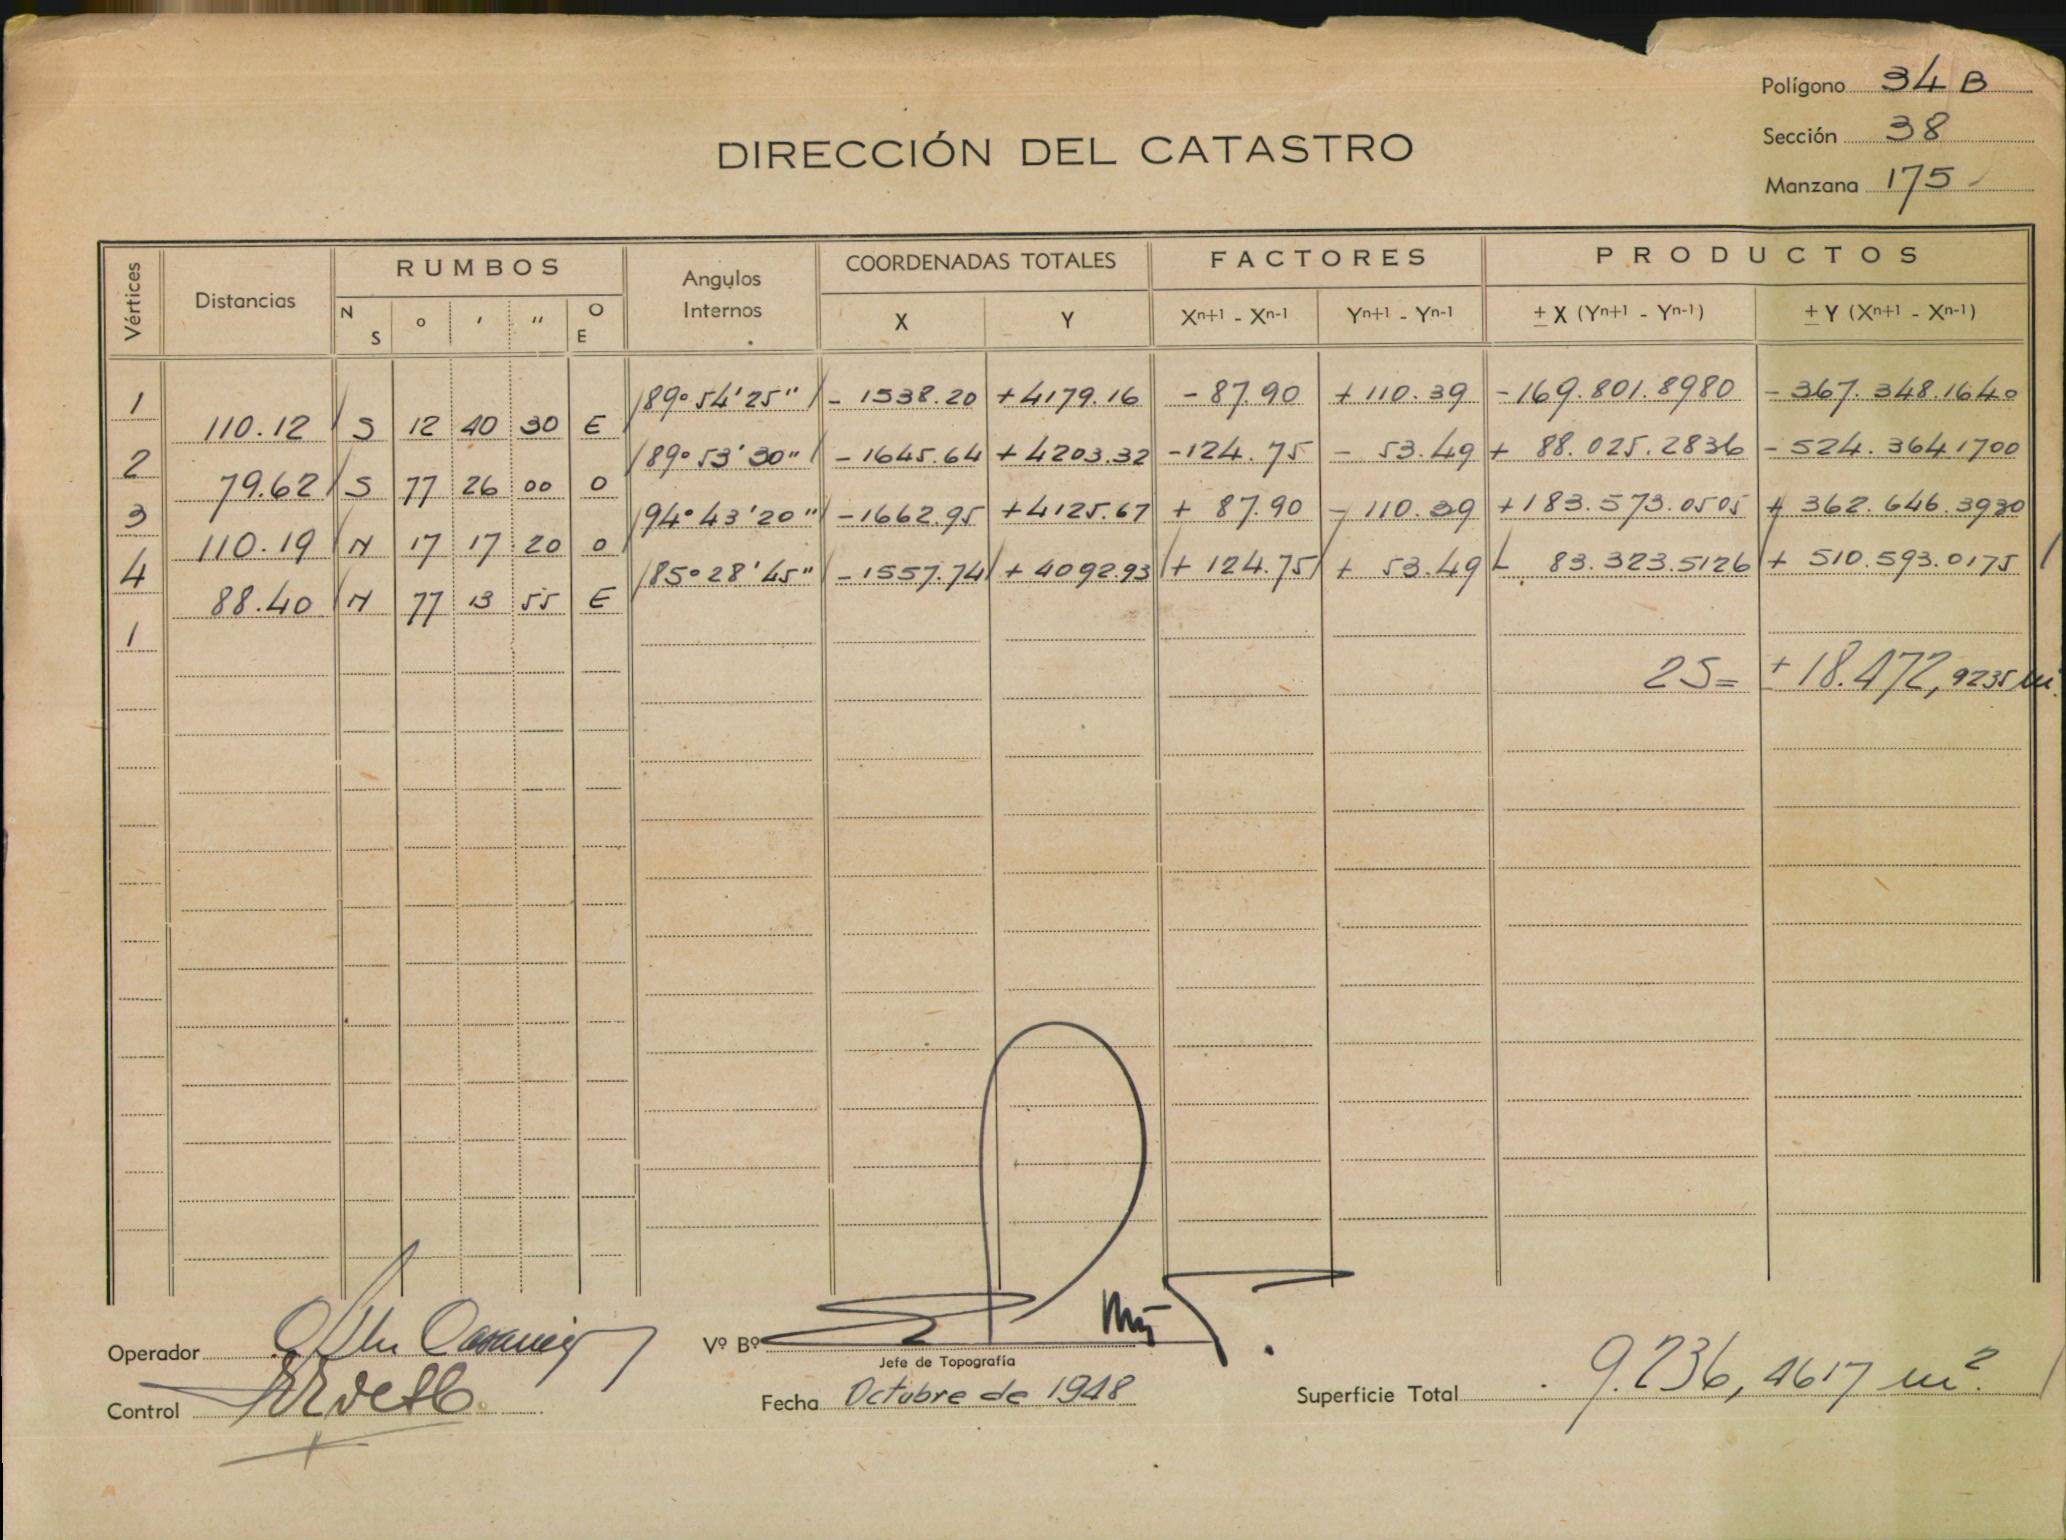 Polígono 34 B
Sección 38
Manzana 175
DIRECCIÓN DEL CATASTRO
Vértices Distancias RUMBOS Angulos Internos COORDENADAS TOTALES FACTORES PRODUCTOS
N S o ' " O E X Y Xn+1 - Xn-1 Yn+1 - Yn-1 ± X (Yn+1 - Yn-1) ± Y (Xn+1 - Xn-1)
1 89° 54' 25" - 1538.20 +4179.16 - 87.90 + 110.39 -169.801.8980 - 367.348.1640
110.12 S 12 40 30 E
2 89° 53' 30" - 1645.64 + 4203.32 -124.75 - 53.49 + 88.025.2836 - 524.364.1700
79.62 S 77 26 00 O
3 94° 43' 20" -1662.95 +4125.67 + 87.90 - 110.39 +183.573.0505 + 362.646.3930
110.19 N 17 17 20 O
4 85° 28' 45" - 1557.74 + 4092.93 + 124.75 + 53.49 - 83.323.5126 + 510.593.0175
88.40 N 77 13 55 E
1
2S= + 18.472,9235 m²
Operador
Vº Bº
Jefe de Topografía
Control
Fecha Octubre de 1948
Superficie Total 9.236,4617 m²